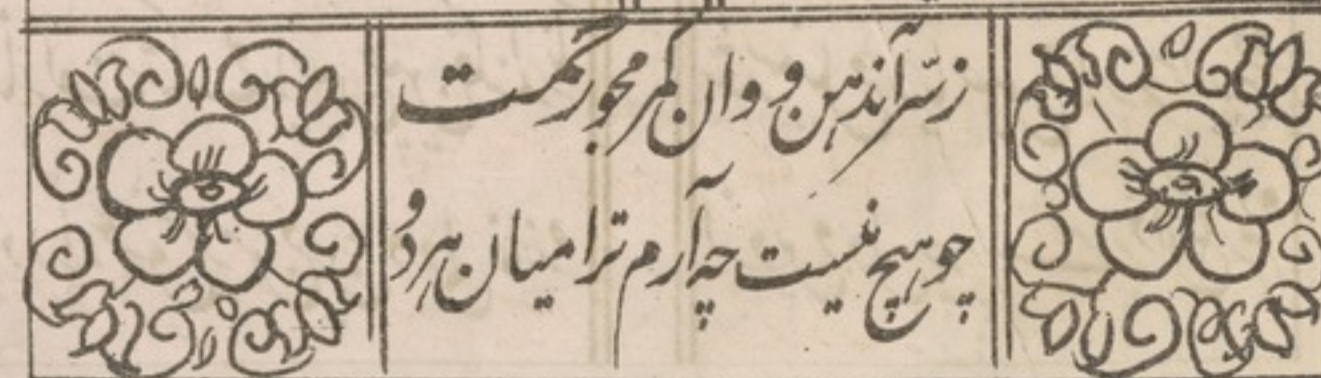 ز سّر آندهن و وان کمر مجو حکمت
چو هیچ نیست چه آرم ترا میان هر دو